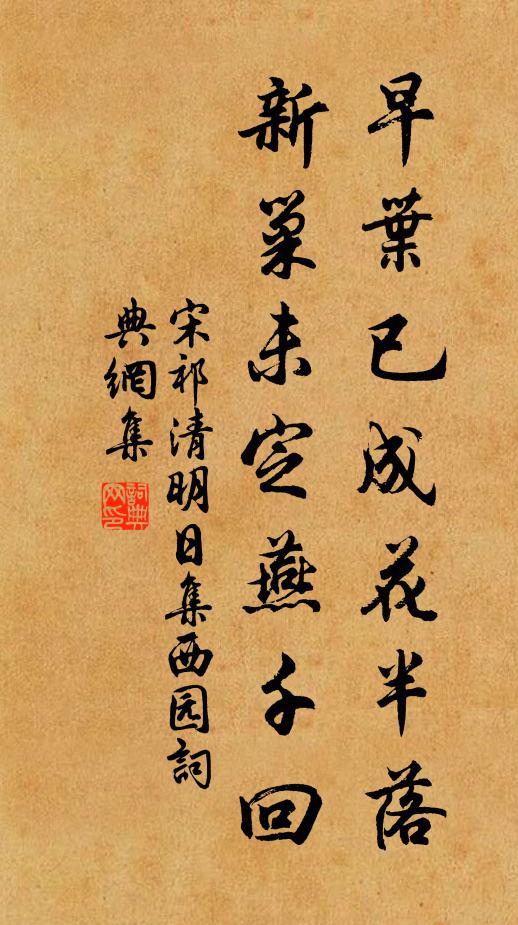 早葉已成花半落
新巢未定燕千回
宋祁清明日集西园詞
典網集
詞典
网印